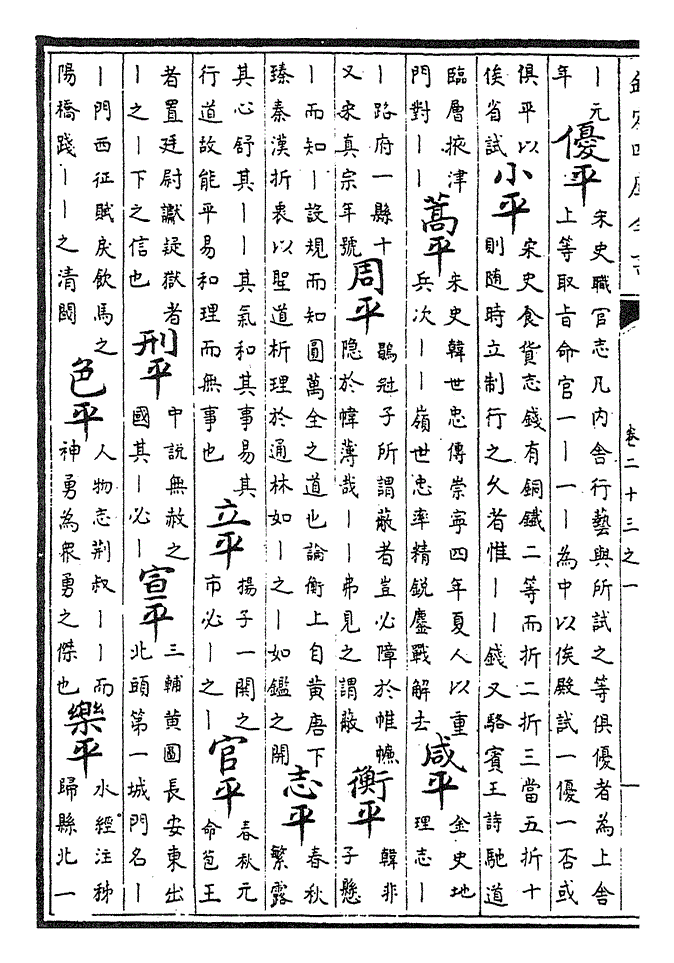 欽定四庫全書
卷二十三之一
一
｜元
年
優平
宋史職官志凡内舍行藝與所試之等俱優者為上舍
上等取旨命官一｜一｜為中以俟殿試一優一否或
俱平以
俟省試
小平
宋史食貨志錢有銅鐵二等而折二折三當五折十
則随時立制行之久者惟｜｜錢又駱賓王詩馳道
臨層掖津
門對｜｜
蒿平
宋史韓世忠傳崇寧四年夏人以重
兵次｜｜嶺世忠率精鋭鏖戰解去
咸平
金史地
理志｜
｜路府一縣十
又宋真宗年號
周平
鶡冠子所謂蔽者豈必障於帷㡘
隐於幃薄哉｜｜弗見之謂蔽
衡平
韓非
子懸
｜而知｜設規而知圓萬全之道也論衡上自黄唐下
臻秦漢折衷以聖道析理於通林如｜之｜如鑑之開
志平
春秋
繁露
其心舒其｜｜其氣和其事易其
行道故能平易和理而無事也
立平
揚子一閧之
市必｜之｜
官平
春秋元
命苞王
者置廷尉讞疑獄者
｜之｜下之信也
刑平
中説無赦之
國其｜必｜
宣平
三輔黄圖長安東出
北頭第一城門名｜
｜門西征賦戾飲馬之
陽橋踐｜｜之清閾
色平
人物志荆叔｜｜而
神勇為衆勇之傑也
樂平
水經注秭
歸縣北一